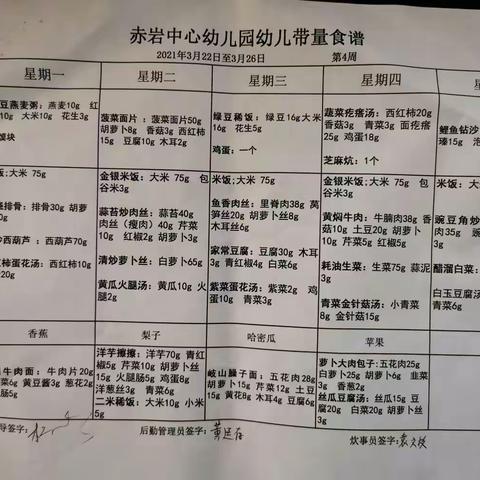 赤岩中心幼儿园幼儿带量食谱
2021年3月22日至3月26日 第4周
星期一 星期二 星期三 星期四
豆燕麦粥：燕麦10g 红
10g 大米10g 花生3g
菠菜面片：菠菜面片50g
胡萝卜8g 香菇3g 西红柿
15g 豆腐10g 木耳2g
绿豆稀饭：绿豆16g大米
16g 花生5g
鸡蛋：一个
蔬菜疙瘩汤：西红柿20g
香菇3g 青菜3g 面疙瘩
25g 鸡蛋18g
芝麻烧：1个
鲤鱼钻沙
饭：大米 75g
排骨：排骨30g 胡萝
炒西葫芦：西葫芦70g
柿蛋花汤：西红柿10g
20g
金银米饭：大米 75g 包
谷米3g
蒜苔炒肉丝：蒜苔40g
肉丝（瘦肉）40g 芹菜
10g 红椒2g 胡萝卜3g
清炒萝卜丝：白萝卜65g
黄瓜火腿汤：黄瓜10g 火
腿2g
米饭：大米 75g
鱼香肉丝：里脊肉38g 莴
笋丝20g 胡萝卜丝8g
木耳丝6g
家常豆腐：豆腐30g 木耳
3g 青红椒4g 白菜6g
紫菜蛋花汤：紫菜2g 鸡
蛋10g 青菜3g
金银米饭：大米 75g 包
谷米3g
黄焖牛肉：牛腩肉38g 香
菇10g 土豆20g 胡萝卜
10g 芹菜5g 红椒5g
耗油生菜：生菜75g 蒜泥
3g
青菜金针菇汤：小青菜
8g 金针菇15g
米饭：大
豌豆角炒
肉35g
醋溜白菜：
白玉豆腐汤
香蕉 梨子 哈密瓜 苹果
牛肉面：牛肉片20g
菜6g 黄豆酱3g 葱花2g
肠5g
洋芋擦擦：洋芋70g 青红
椒5g 芹菜10g 胡萝卜丝
15g 火腿肠5g 鸡蛋8g
洋葱丝3g 青菜6g
二米稀饭：大米10g 小米
5g
岐山臊子面：五花肉28g
胡萝卜15g 芹菜12g 土豆
15g 黄花8g 木耳4g 豆腐6g
萝卜大肉包子：五花肉25g
白萝卜25g 胡萝卜6g 韭菜
3g 香葱2g
丝瓜豆腐汤：丝瓜15g 豆
腐20g 白菜20g 胡萝卜丝
3g
导签字： 后勤管理员签字： 炊事员签字：